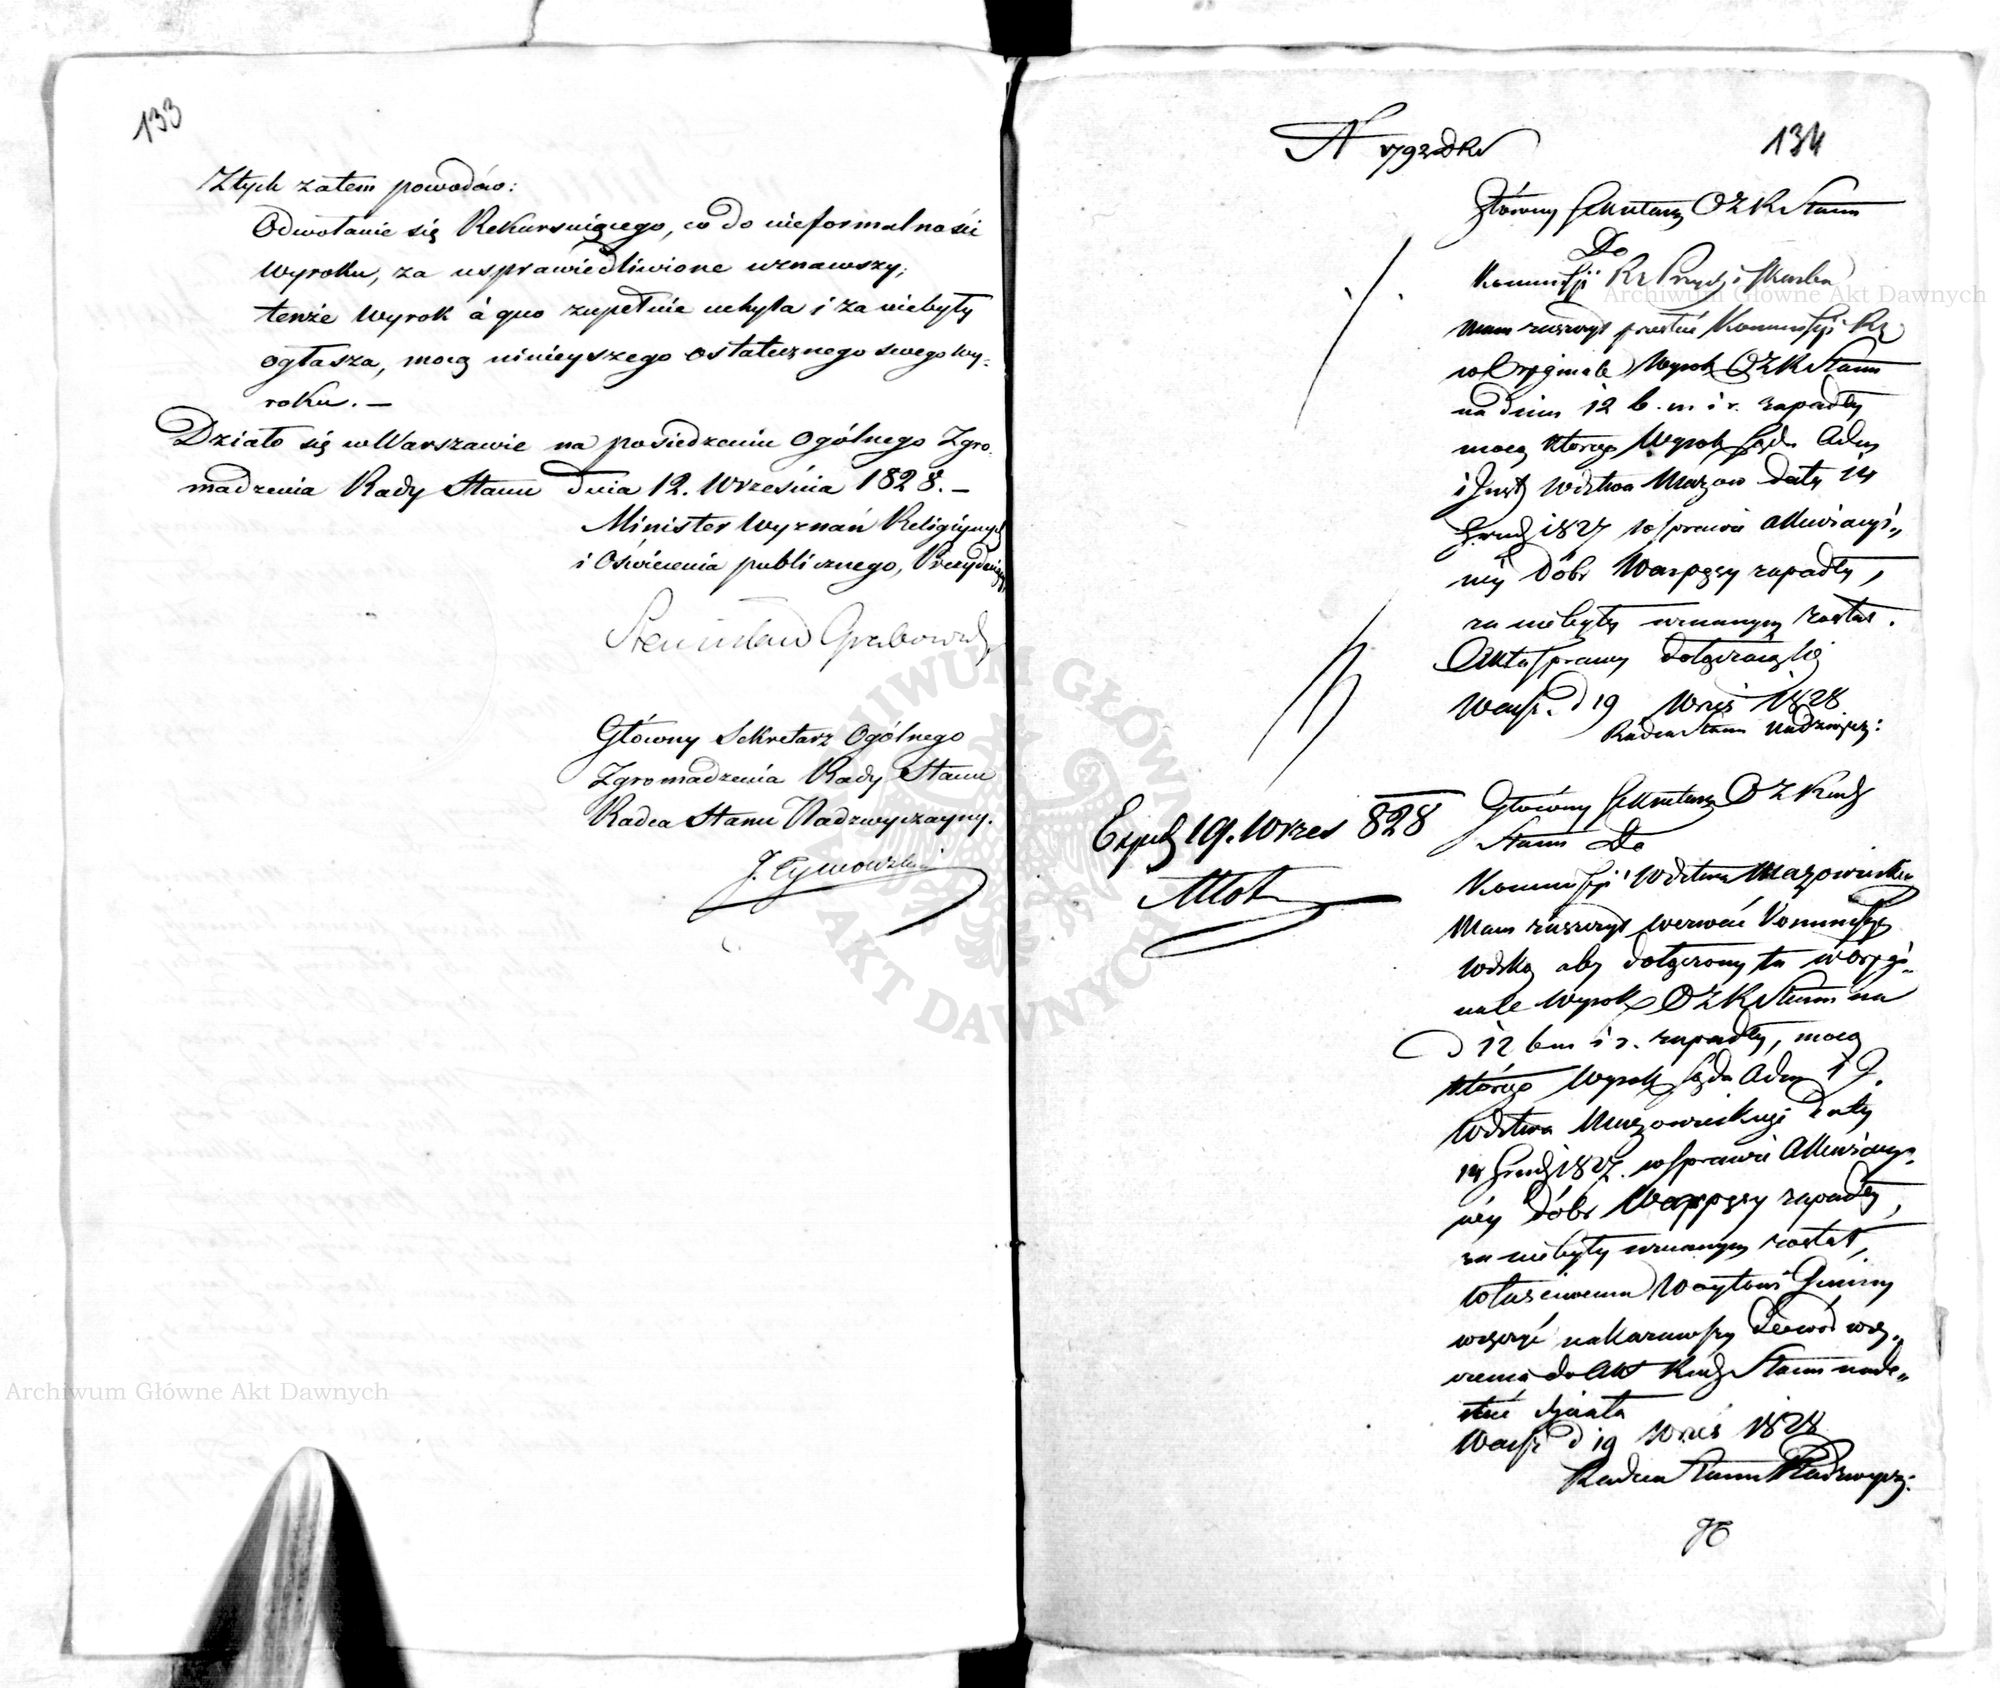 133
Z tych zatem powodów:
Odwołanie się Rekursuiącego, co do nieformalności
wyroku, za usprawiedliwione uznawszy;
tenże Wyrok à quo zupełnie uchyla i za niebyły
ogłasza, mocą ninieyszego ostatecznego swego wy-
roku. —
Działo się w Warszawie na posiedzeniu Ogólnego Zgro-
madzenia Rady Stanu dnia 12. Września 1828. —
Minister Wyznań Religiynych
i Oświecenia publicznego, Prezyduiący
Stanisław Grabowski
Główny Sekretarz Ogólnego
Zgromadzenia Rady Stanu
Radca Stanu Nadzwyczayny.
J. Tymowski
134
N
Główny Sekretarz OZR Stanu
Do
Kommissji Rz Przych i Skarbu
Mam zaszczyt przesłać Kommissji Rz
w Oryginale Wyrok OZR Stanu
na dniu 12 b. m. i r. zapadły
mocą którego Wyrok Sądu Adm
i Wdztwa Mazow daty 14
Grud 1827 w sprawie
ney Dóbr zapadły,
za niebyły uznanym został.
Akta sprawy dołączaią się
Warsz. d 19 Wrześ 1828
Radca Stanu Nadzwycz:
Exped 19. Wrzes 828
Główny Sekretarz OZ Rady
Stanu Do
Kommissji Wdztwa Mazowieckie
Mam zaszczyt wezwać Kommissyę
Wdzką aby dołączony tu w orygi-
nale Wyrok OZR Stanu na
d 12 bm i r. zapadły, mocą
którego Wyrok Sądu Adm i J.
Wdztwa Mazowieckiego daty
14 Grud 1827. w sprawie
ney Dóbr zapadły,
za niebyły uznanym został,
właściwemu Woytowi Gminy
wręczyć nakazawszy dowód wrę-
czenia do Akt Rady Stanu nade-
słać
Warsz d 19 Wrześ 1828
Radca Stanu Nadzwycz:
Archiwum Główne Akt Dawnych
Archiwum Główne Akt Dawnych
ARCHIWUM GŁÓWNE AKT DAWNYCH